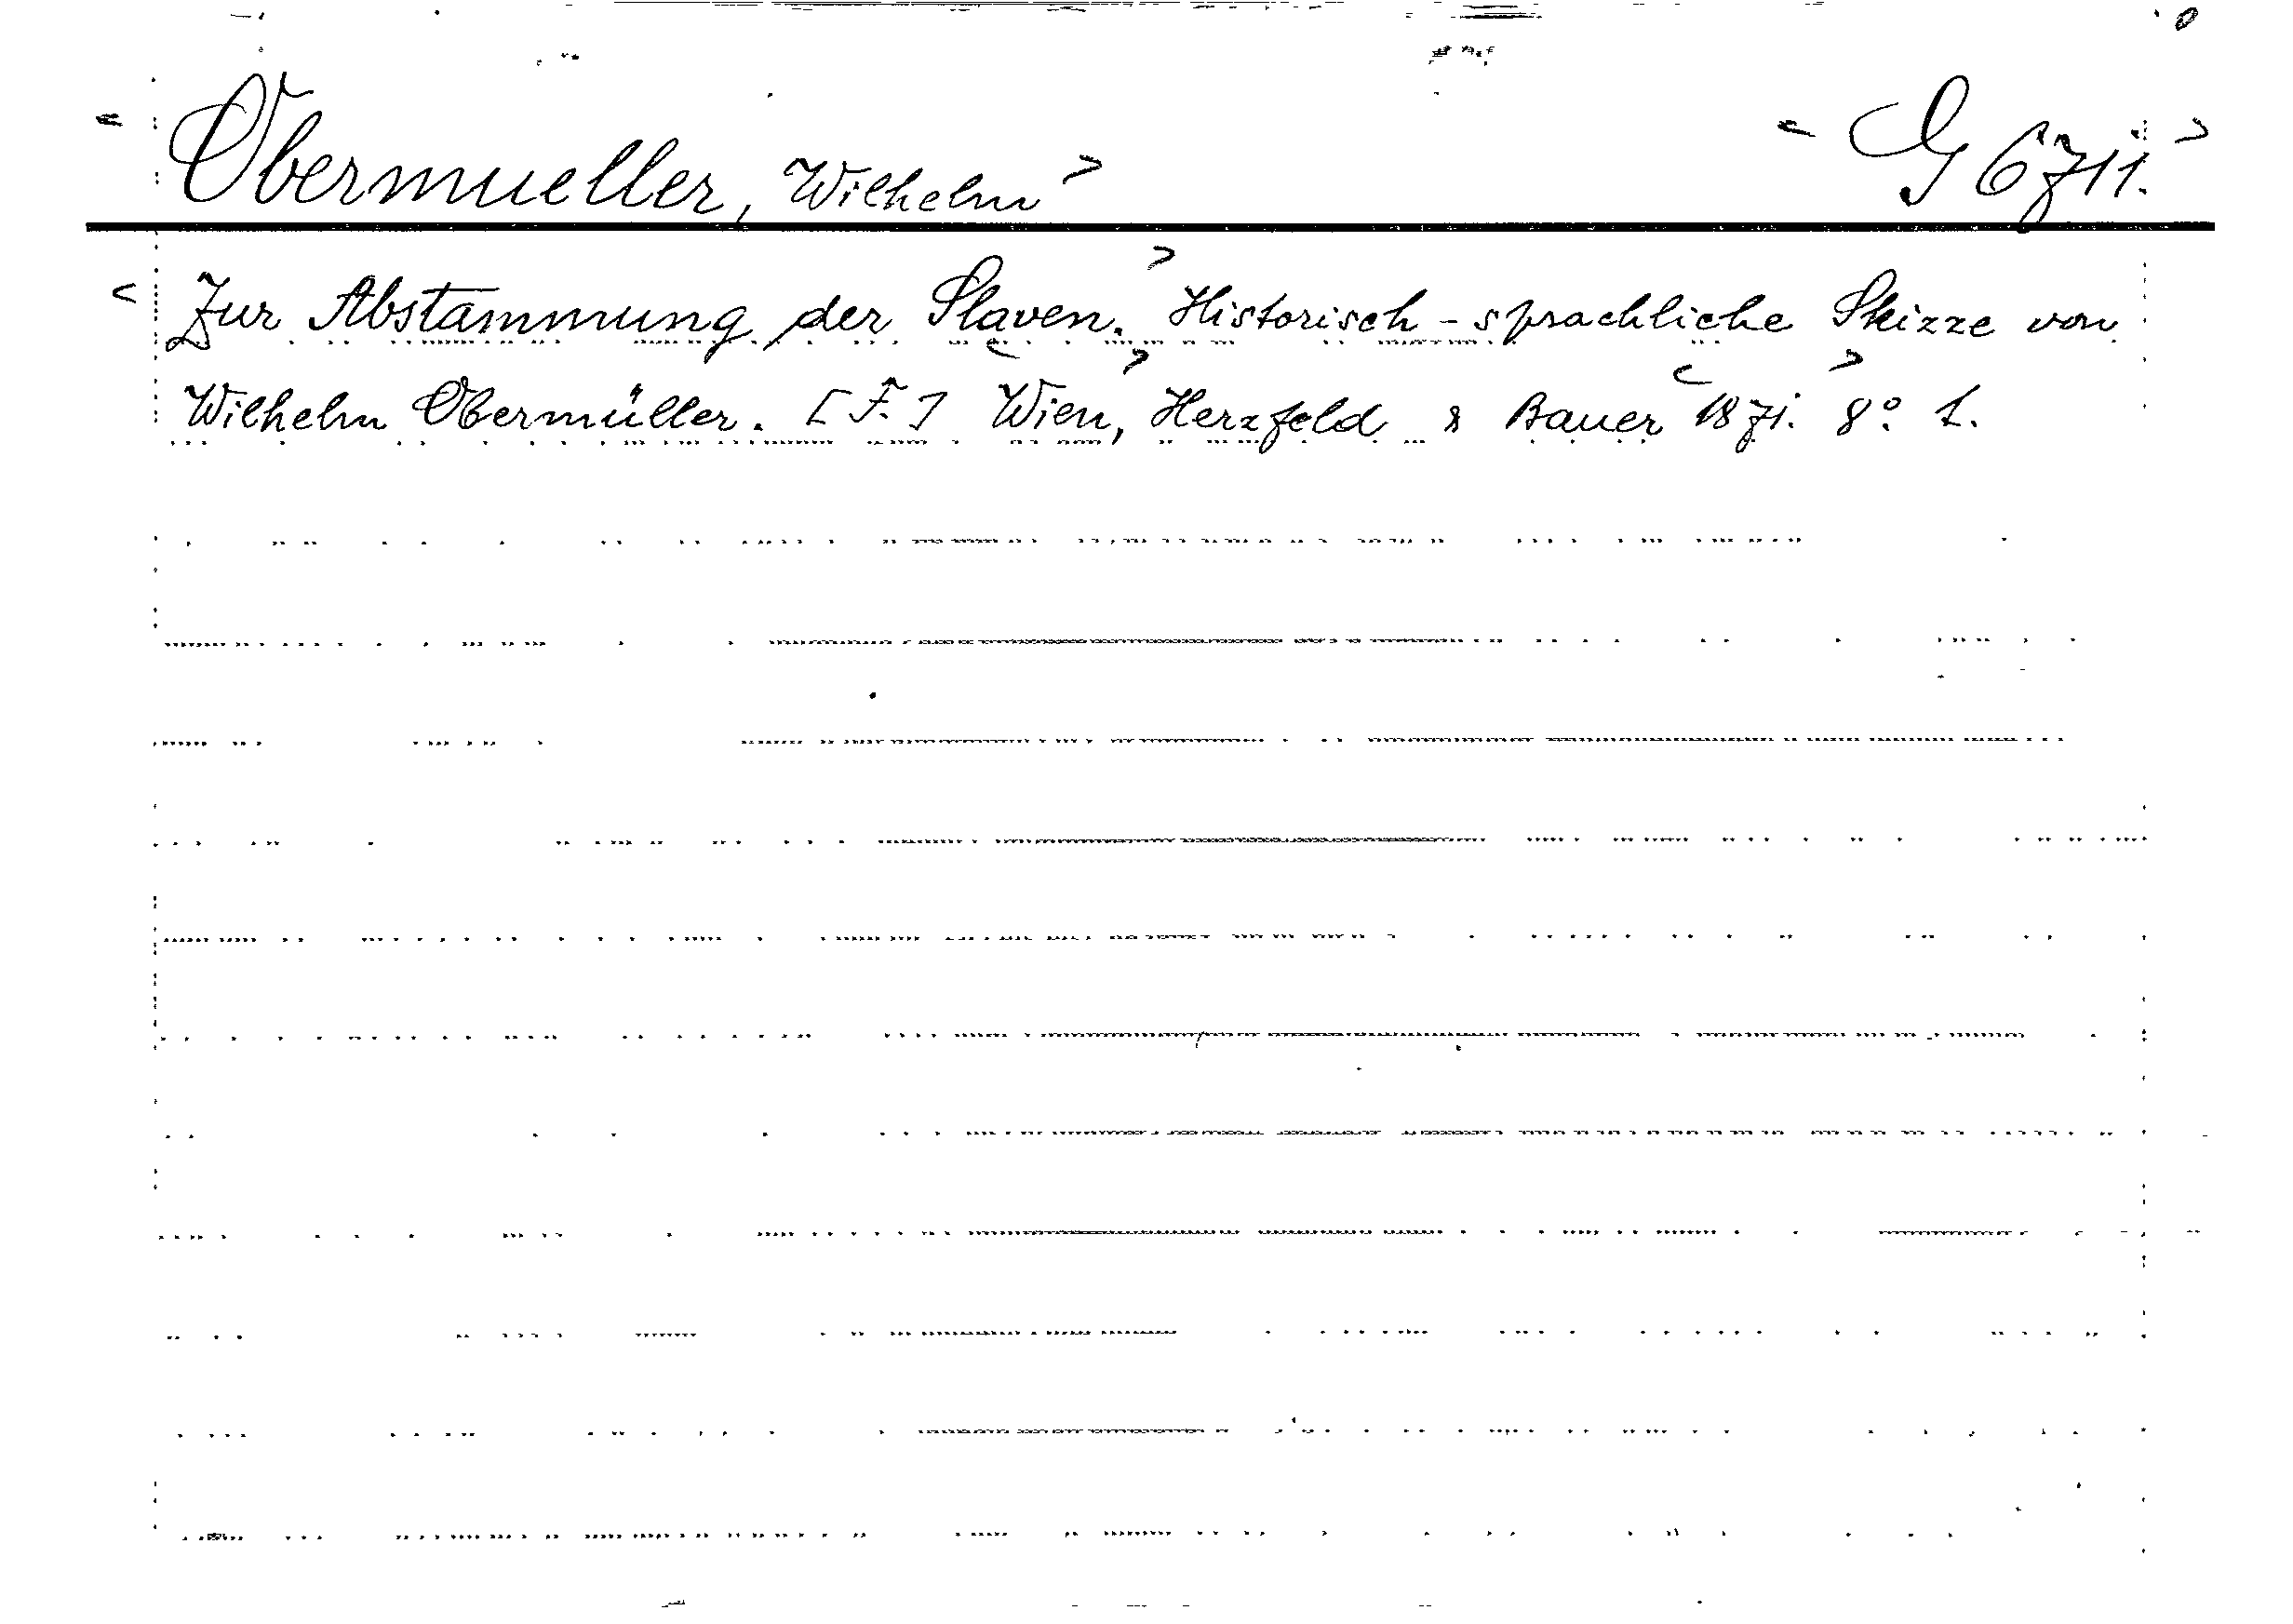 < Obermueller, Wilhelm > < G 6711. >
< Zur Abstammung der Slaven. > Historisch-sprachliche Skizze von
Wilhelm Obermüller. [F.] < Wien, > Herzfeld & Bauer < 1871. > 8° 1.